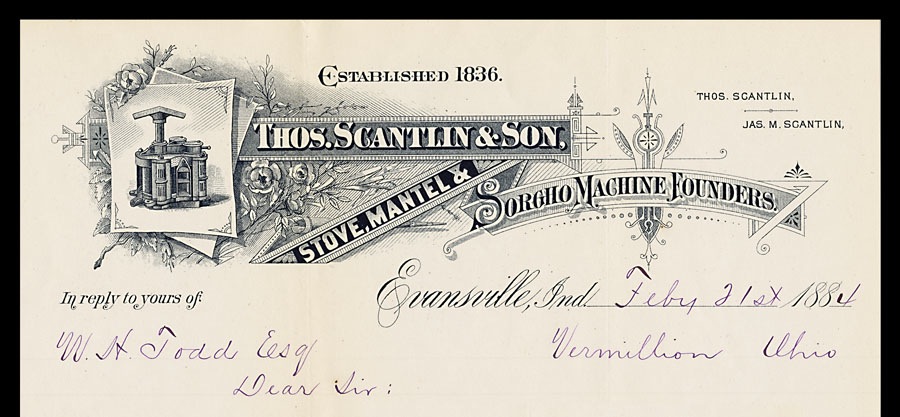 ESTABLISHED 1836.
THOS. SCANTLIN,
JAS. M. SCANTLIN,
THOS. SCANTLIN & SON,
STOVE, MANTEL &
SORGHO MACHINE FOUNDERS.
Evansville, Ind. Feby 21st 1884
In reply to yours of:
W. H. Todd Esq
Vermillion Ohio
Dear Sir: